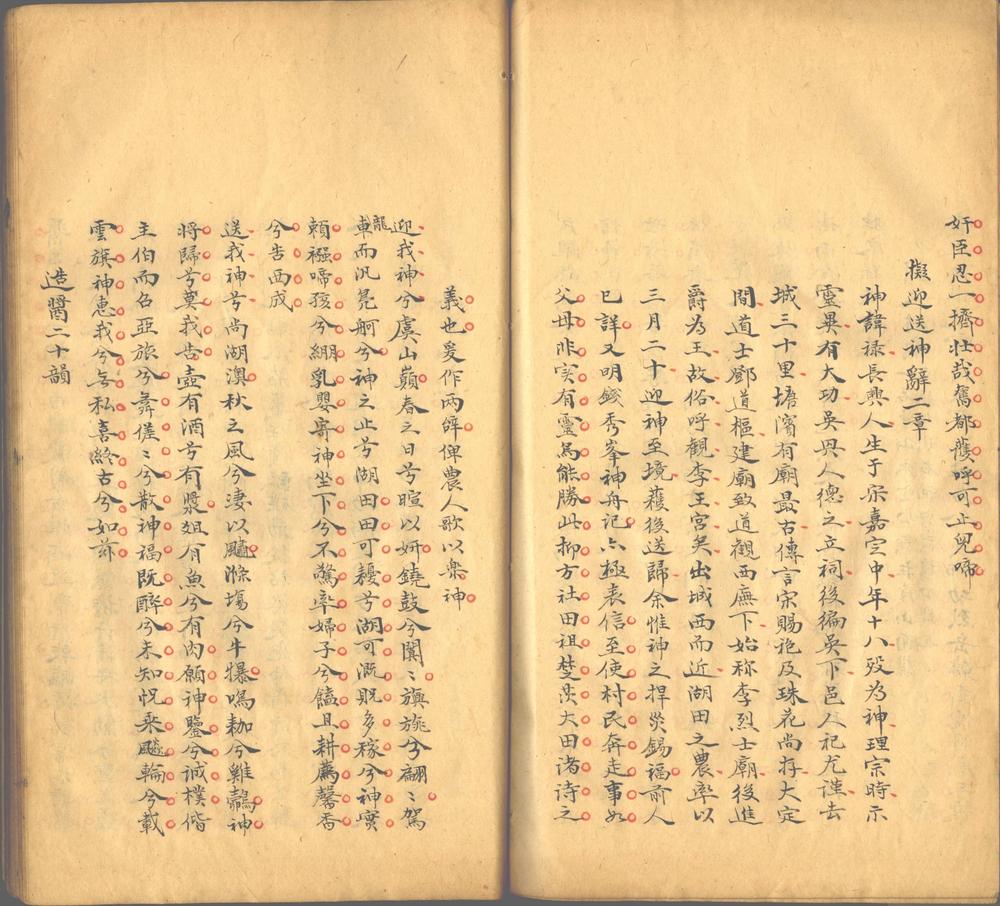 奸臣忍一擠壯哉舊都護呼可止兒啼
擬迎送神辭二章
神諱祿長興人生于宋嘉定中年十八歿為神理宗時示
靈異有大功吳興人德之立祠後徧吳下邑人祀尤謹去
城三十里塘濱有廟最古傳言宋賜袍及珠花尚存大定
間道士鄧道樞建廟致道觀西廡下始称李烈士廟後進
爵為王故俗呼觀李王宮矣出城西而近湖田之農率以
三月二十迎神至境穫後送歸余惟神之捍災錫福前人
已詳又明錢秀峯神舟記六極表信至使村民奔走事如
父母非实有靈焉能勝此抑方社田祖楚茨大田诸诗之
義也爰作两辞俾農人歌以樂神
迎我神兮虞山巔春之日兮暄以妍鐃鼓兮闐〻旟旐兮翩〻駕
龍車而汎凫舸兮神之止兮湖田田可耰兮湖可溉貺多稼兮神實
賴襁啼孩兮綳乳嬰寄神坐下兮不驚率婦子兮饁且耕薦馨香
兮告西成
送我神兮尚湖澳秋之風兮淒以飈滌塲兮牛犦鳴耞兮雞鷮神
將歸兮莫我告壺有酒兮有漿俎有魚兮有肉願神鑒兮诚樸偕
主伯而召亞旅兮舞僊〻兮散神福既醉兮未知怳乘飈輪兮載
雲旗神惠我兮無私喜終古兮如茲
造醤二十韻